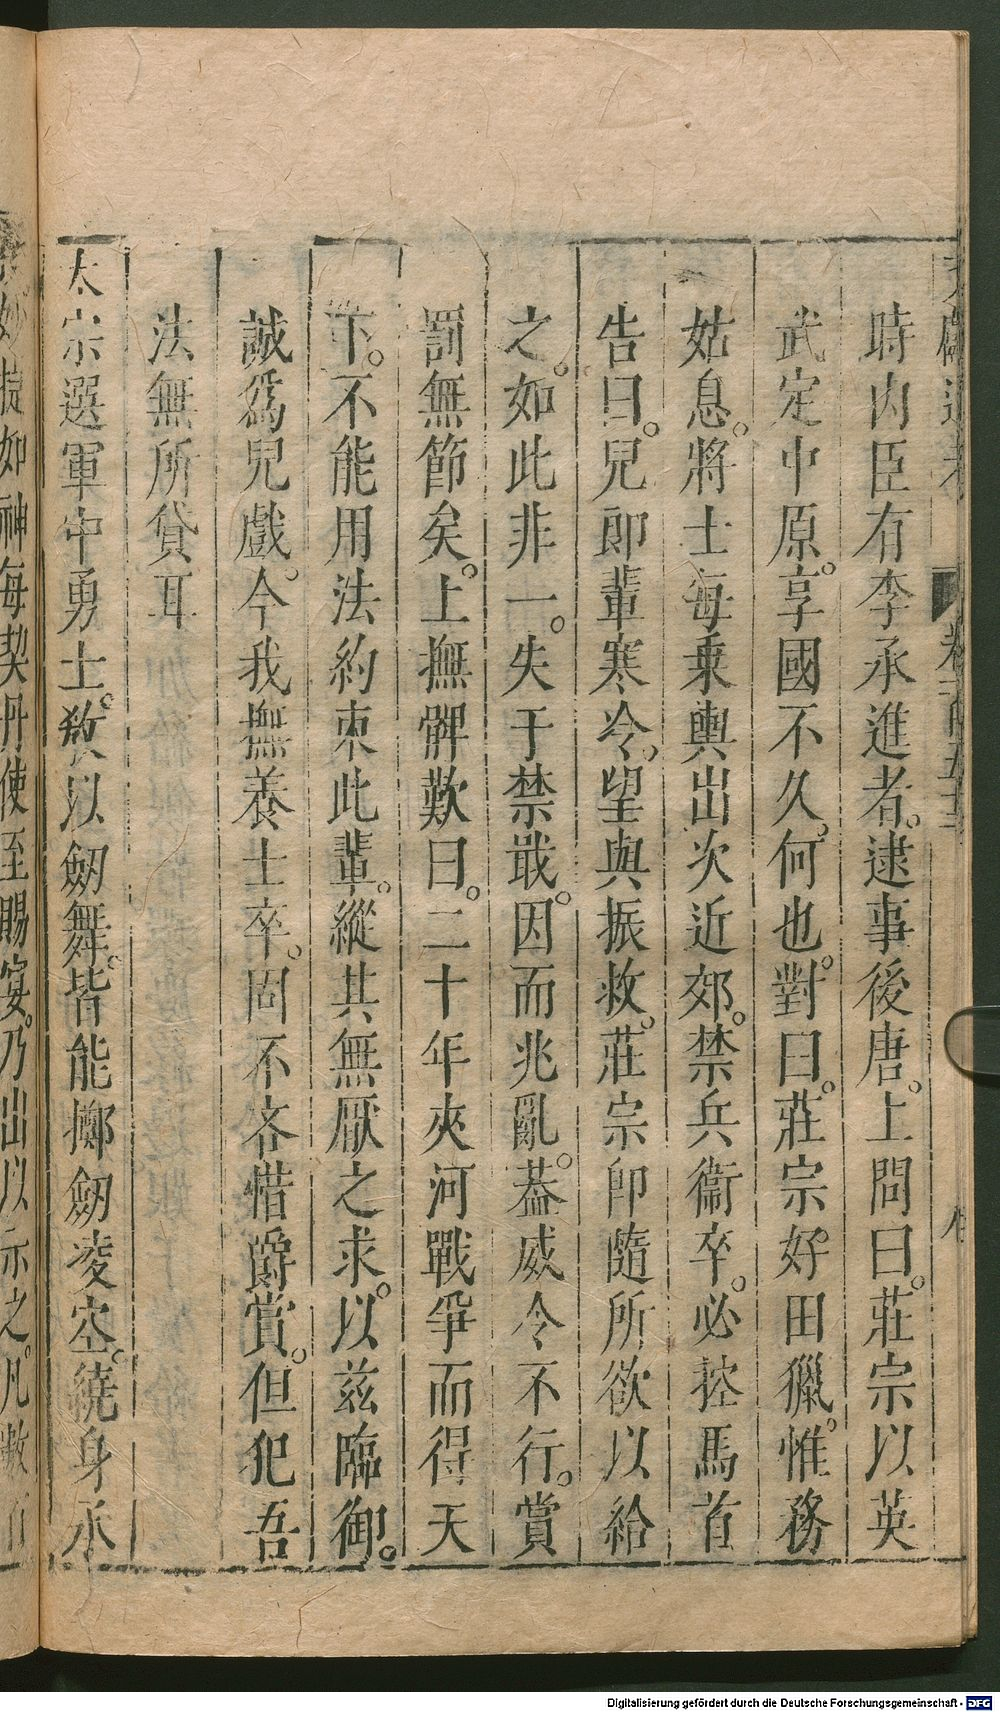 時內臣有李承進者。逮事後唐。上問曰。莊宗以英
武定中原。享國不久。何也。對曰。莊宗好田獵。惟務
姑息。將士每乘輿出次近郊。禁兵衞卒。必控馬首
告曰。兒郎輩寒冷。望與振救。莊宗卽隨所欲以給
之。如此非一。失于禁戢。因而兆亂。葢威令不行。賞
罰無節矣。上撫髀歎曰。二十年夾河戰爭而得天
下。不能用法約束此輩。縱其無厭之求。以茲臨御。
誠爲兒戲。今我撫養士卒。固不吝惜爵賞。但犯吾
法無所貸耳
太宗選軍中勇士。敎以劒舞。皆能擲劒凌空。繞身承
妙捷如神每契丹使至賜宴。乃出以示之。凡數百
Digitalisierung gefördert durch die Deutsche Forschungsgemeinschaft - DFG